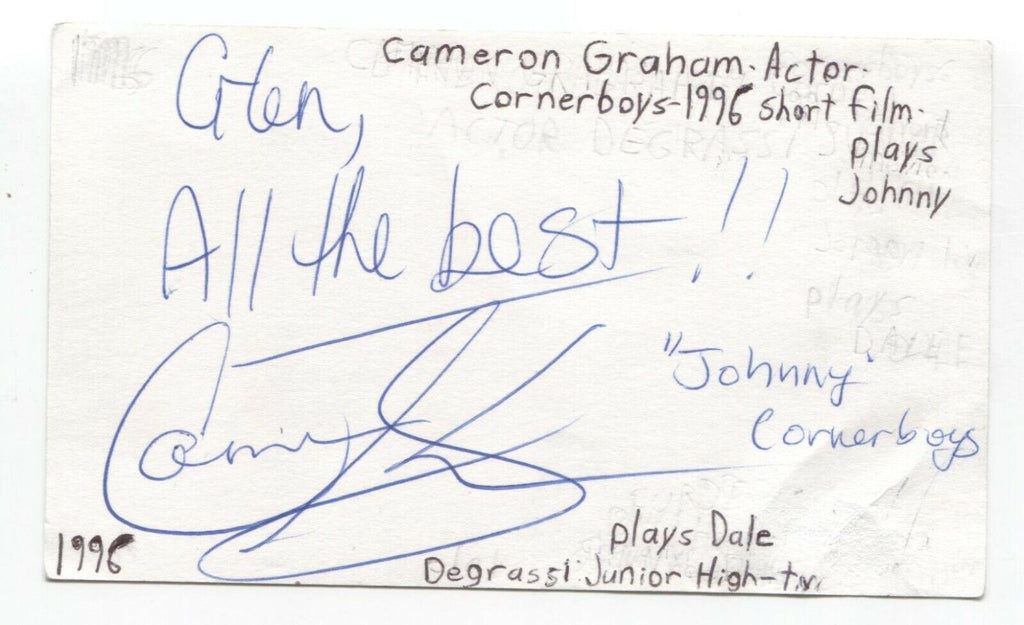 Cameron Graham. Actor.
Cornerboys-1996 short film.
plays
Johnny
Glen,
All the best!!
"Johnny"
Cornerboys
plays Dale
Degrassi Junior High-t.v.
1996